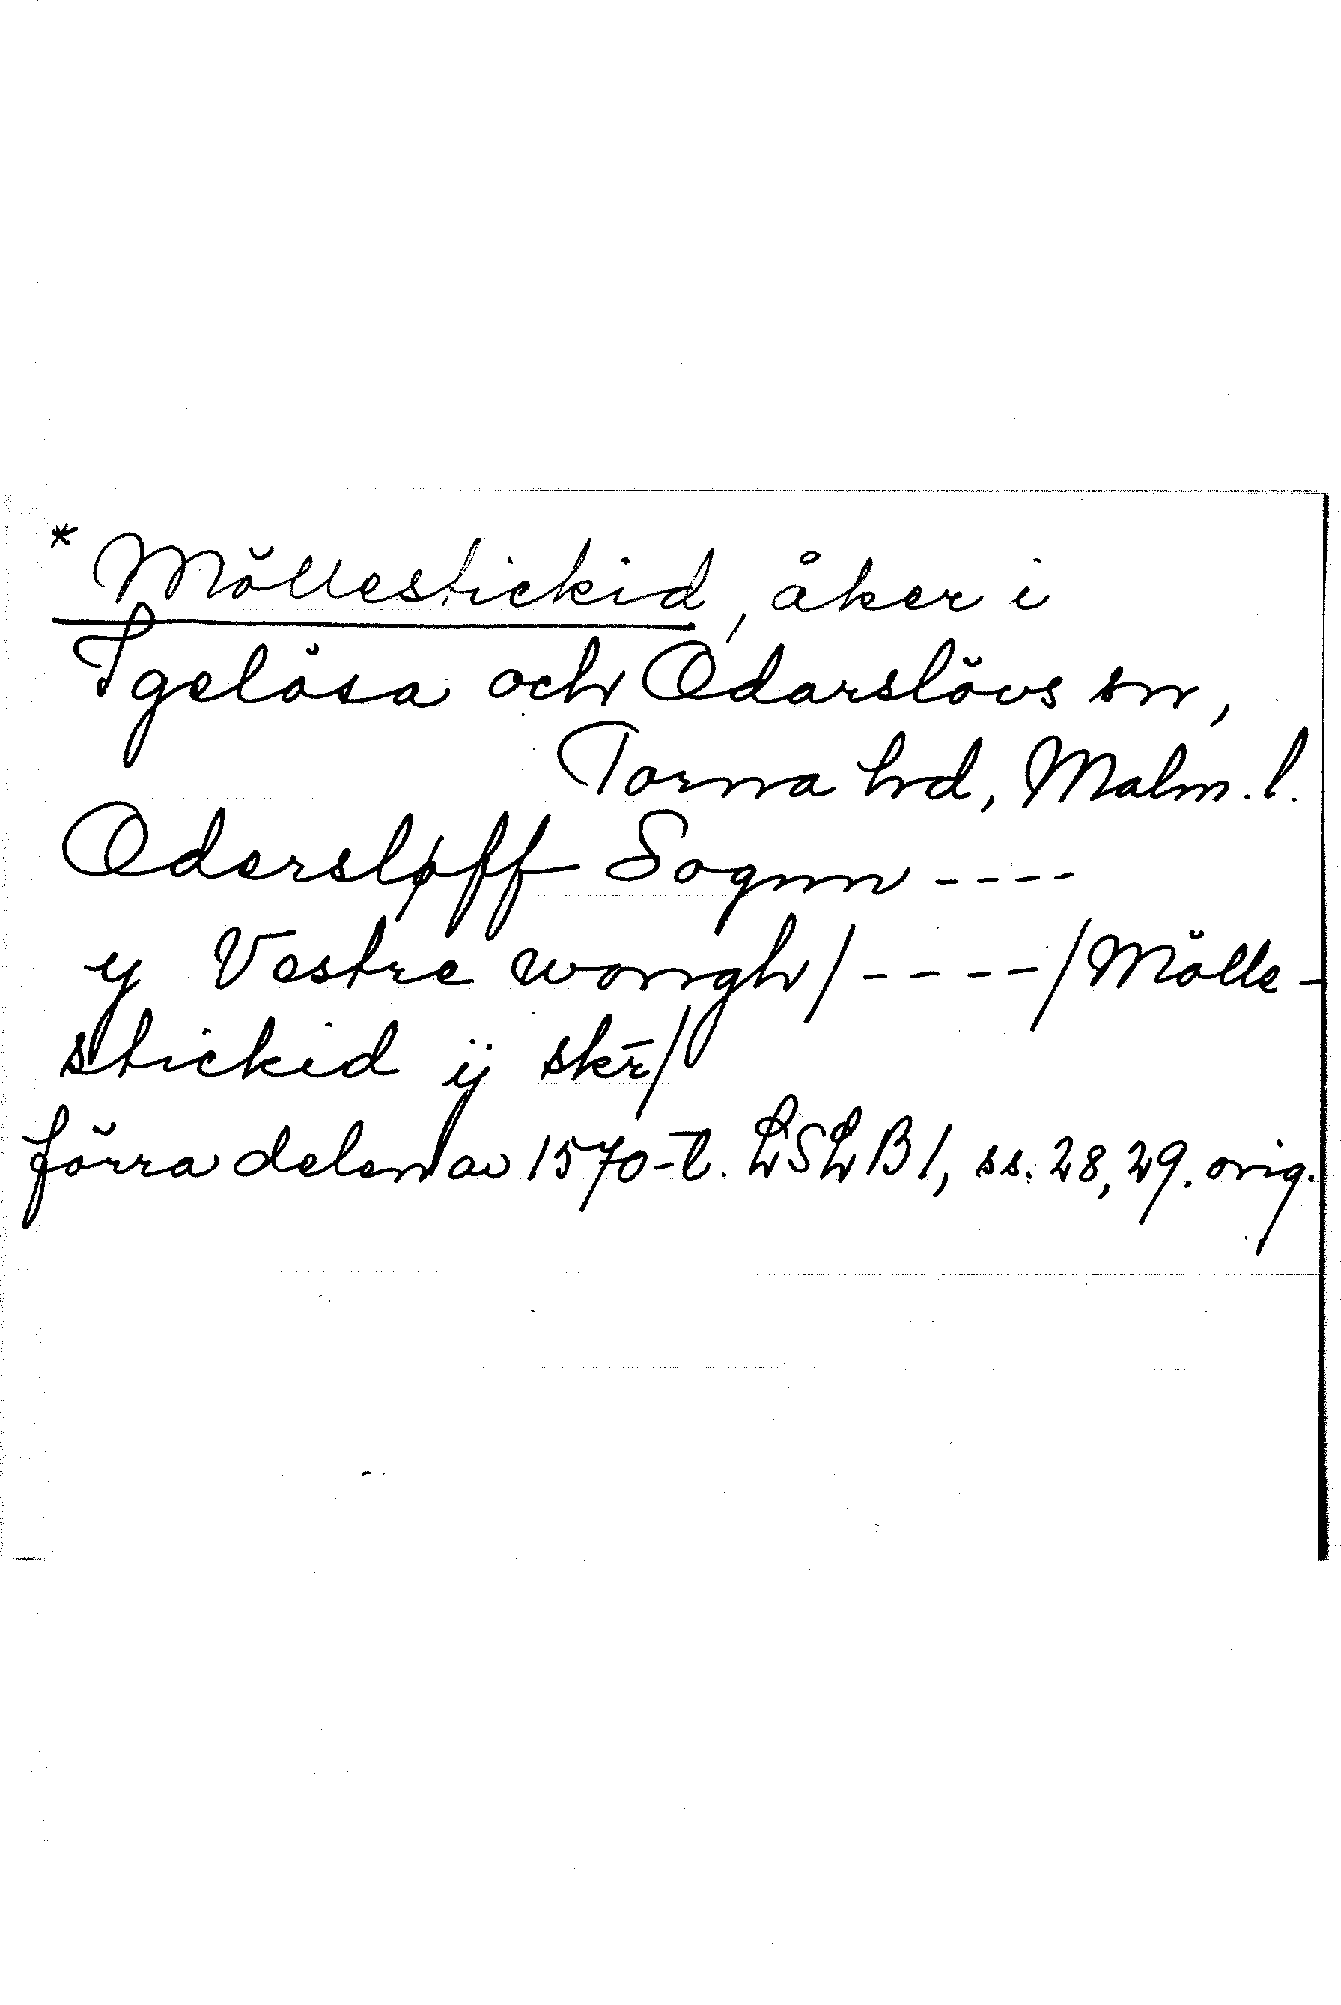 * Möllestickid, åker i
Igelösa och Odarslövs sn,
Torna hd, Malm. l.
Odersløff Sognn ----
y Vestre wongh/ ----/ Mölle-
stickid ij skr̄/
förra delen av 1570-t. LSLB 1, ss. 28, 29. orig.